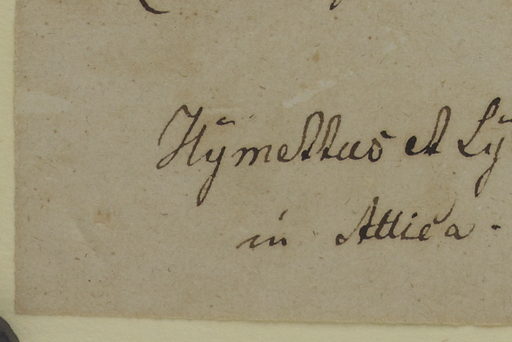 Hÿmettus et Lÿ
in Attica.